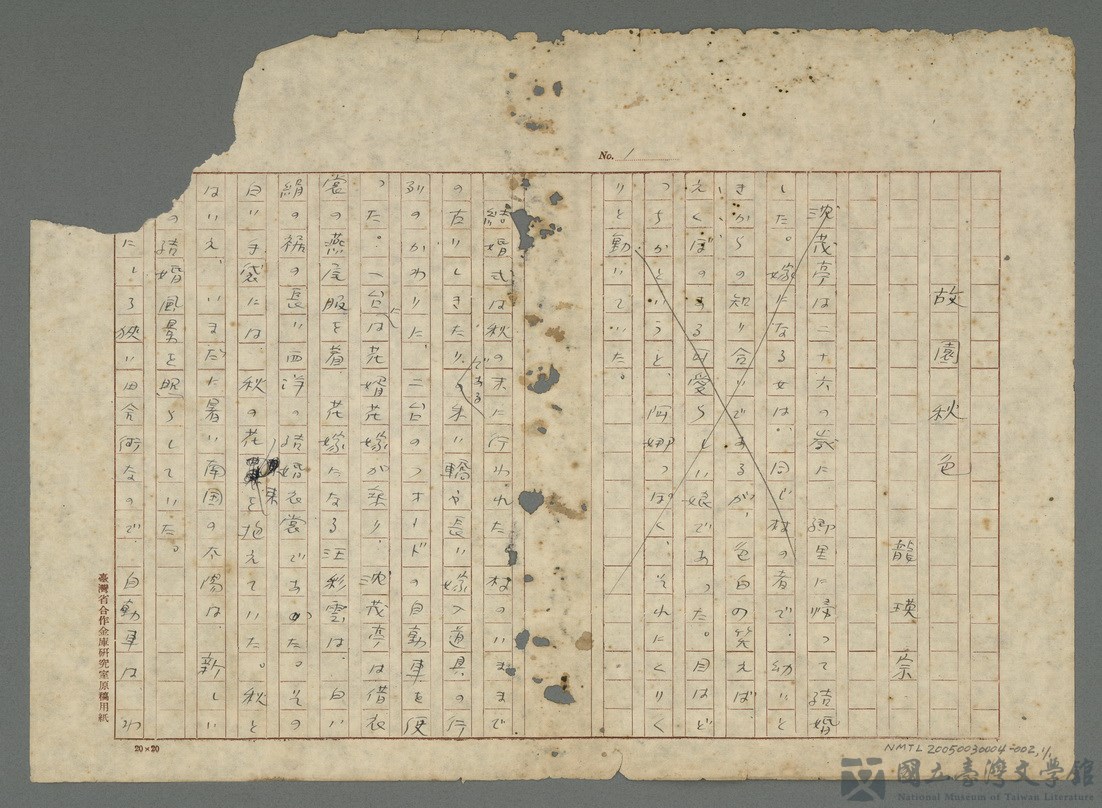 No. 1
故園秋色
龍瑛宗
沈茂亭は二十六の歳に、郷里に帰って結婚
した。嫁になる女は、同じ村の者で、幼いと
きからの知り合いであるが、色白の笑えば
えくぼのある可愛らしい娘であった。目はど
っちかというと、阿娜っぽく、それにくりく
りと動いていた。
結婚式は秋の末に行われた。村のいままで
の古いしきたりである朱い轎や長い嫁入道具の行
列のかわりに、二台のフォードの自動車を使
った。一台には花婿花嫁が乗り、沈茂亭は借衣
裳の燕尾服を着、花嫁たる汪彩雲は、白い
絹の裾の長い西洋の結婚衣裳であった。その
白い手袋には、秋の花束を抱えていた。秋と
はいえ、いまだた暑い南国の太陽は、新しい
の結婚風景を照らしていた。
にしろ狭い田舎街なので、自動車は、わ
臺灣省合作金庫研究室原稿用紙
20×20
NMTL 20050030004-002, 1/
國立臺灣文學館
National Museum of Taiwan Literature